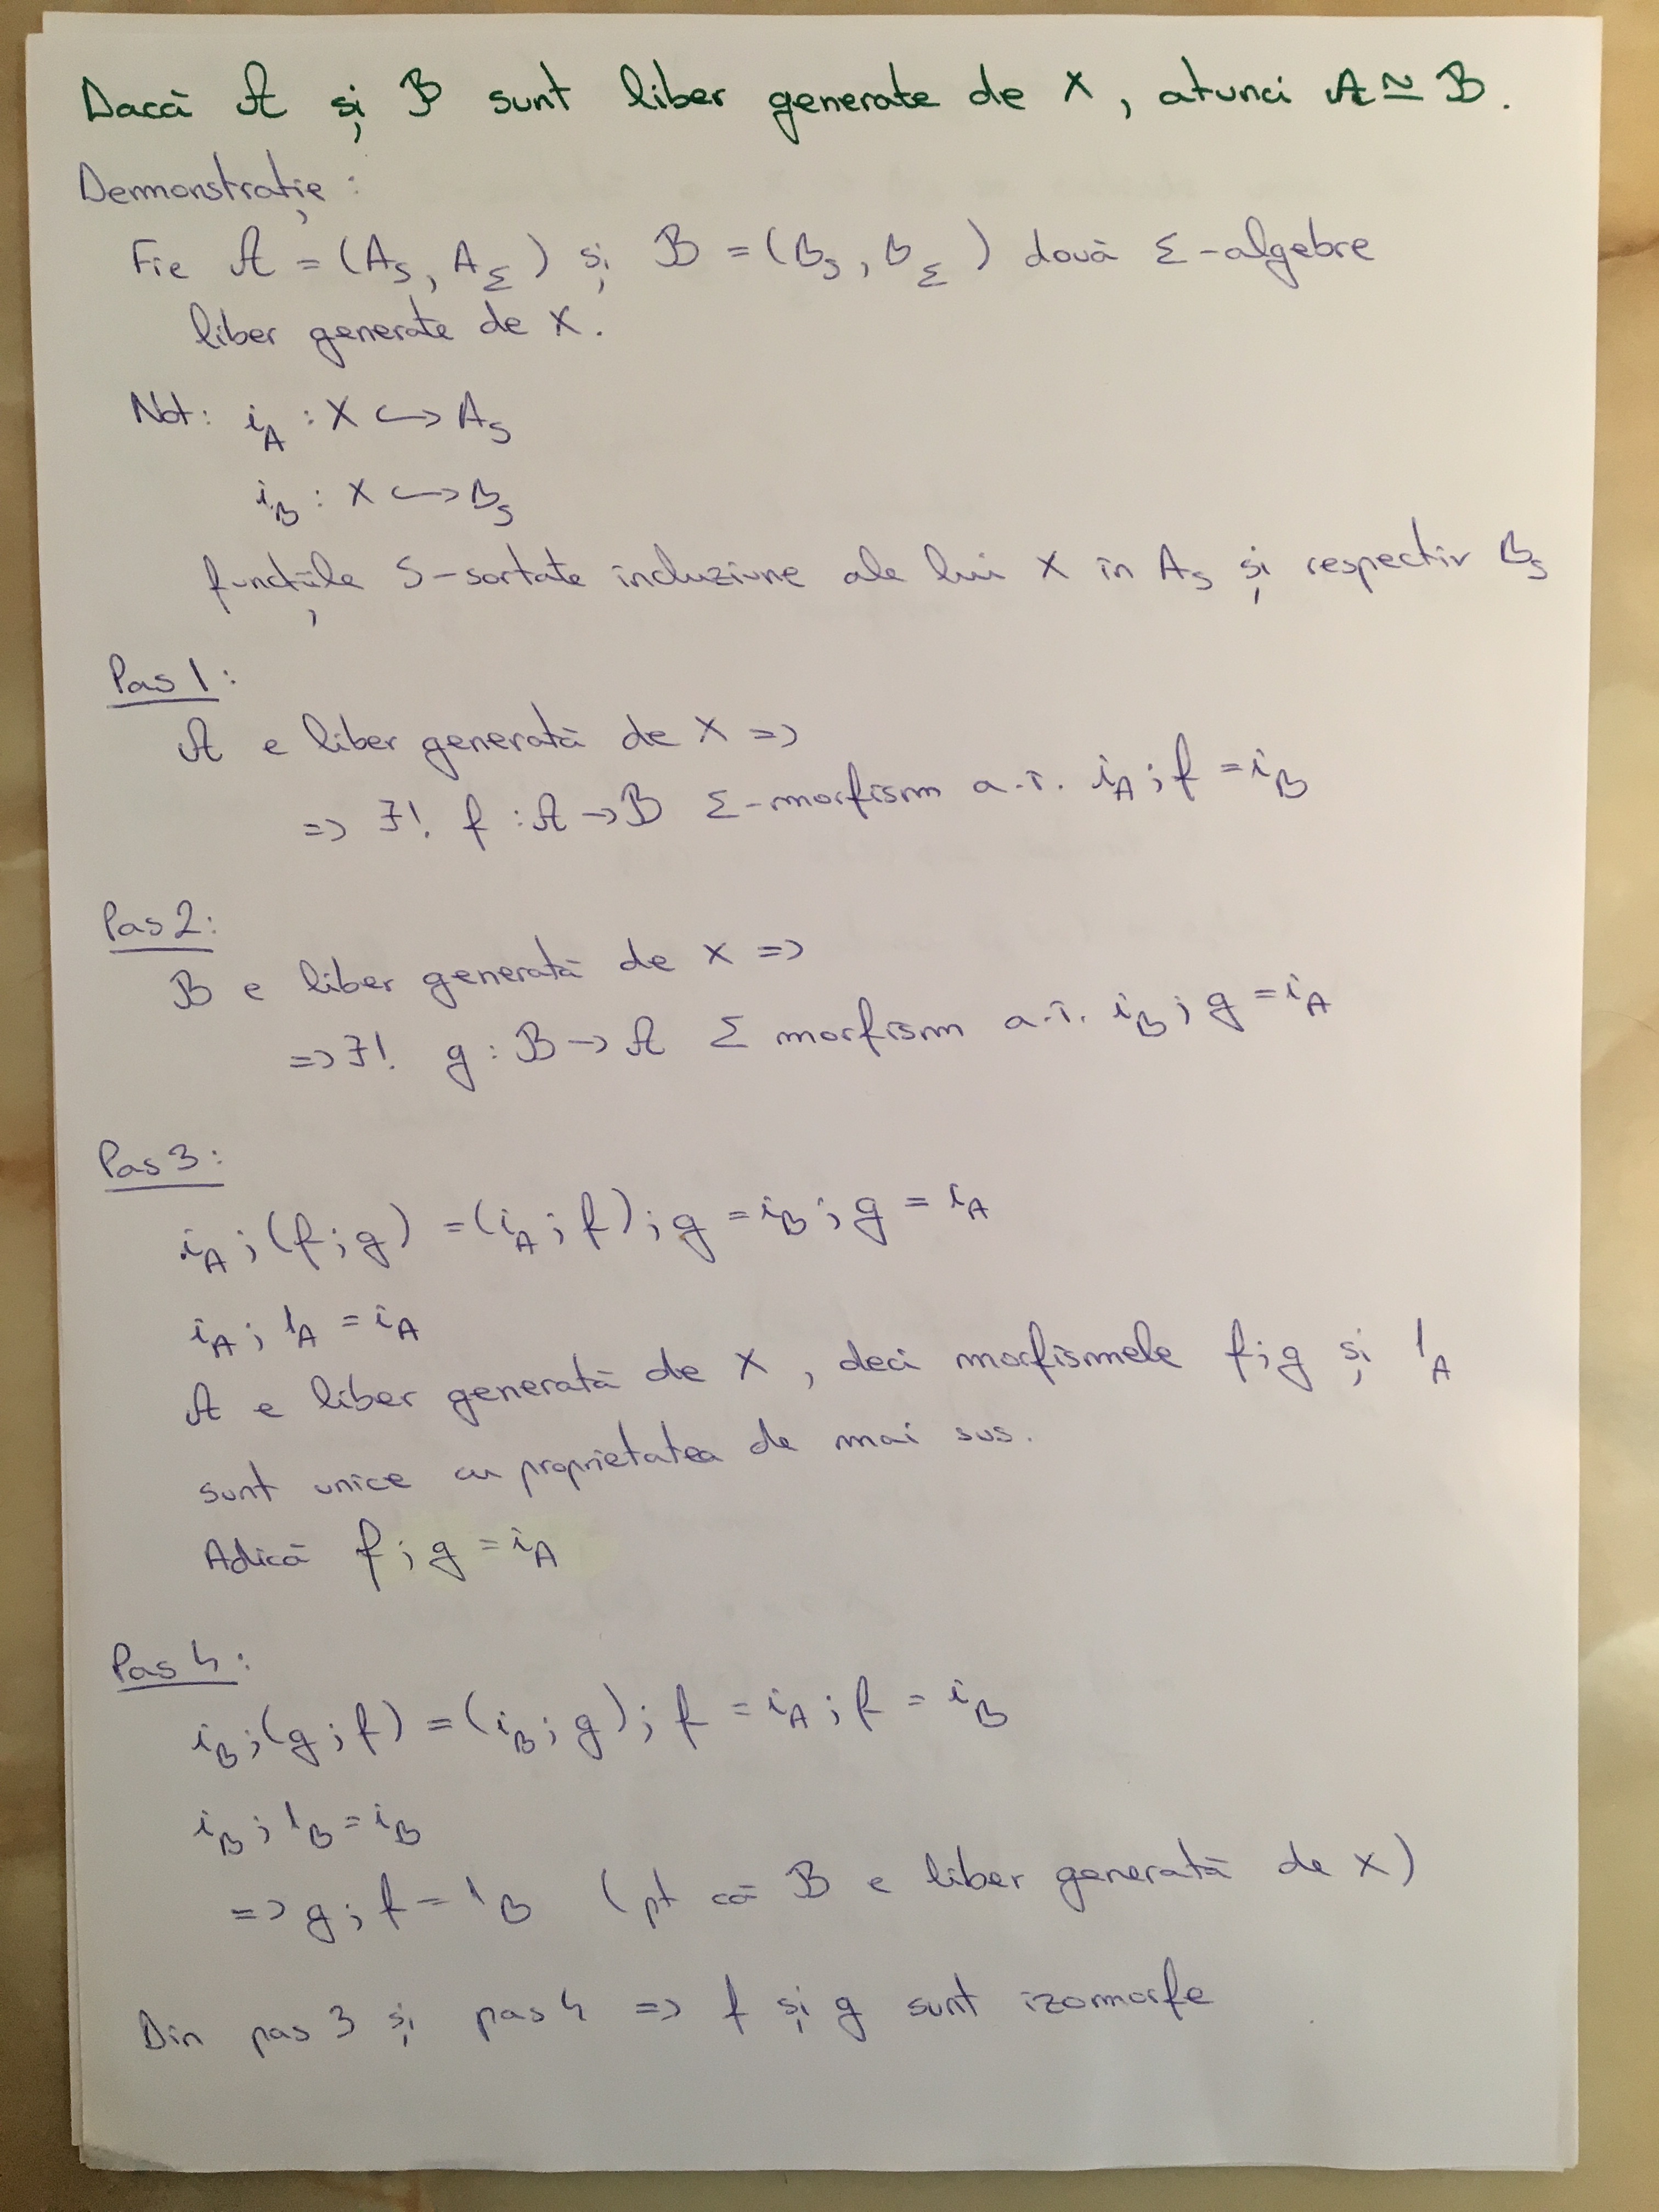 Dacă 𝒜 și ℬ sunt liber generate de X, atunci 𝒜 ≃ ℬ.
Demonstrație:
Fie 𝒜 = (A_S, A_Σ) și ℬ = (B_S, B_Σ) două Σ-algebre
liber generate de X.
Not: i_A : X ↪ A_S
i_B : X ↪ B_S
funcțiile S-sortate incluziune ale lui X în A_S și respectiv B_S
Pas 1:
𝒜 e liber generată de X =>
=> ∃! f : 𝒜 → ℬ Σ-morfism a.î. i_A ; f = i_B
Pas 2:
ℬ e liber generată de X =>
=> ∃! g : ℬ → 𝒜 Σ morfism a.î. i_B ; g = i_A
Pas 3:
i_A ; (f ; g) = (i_A ; f) ; g = i_B ; g = i_A
i_A ; 1_A = i_A
𝒜 e liber generată de X, deci morfismele f;g și 1_A
sunt unice cu proprietatea de mai sus.
Adică f ; g = i_A
Pas 4:
i_B ; (g ; f) = (i_B ; g) ; f = i_A ; f = i_B
i_B ; 1_B = i_B
=> g ; f = 1_B (pt că ℬ e liber generată de X)
Din pas 3 și pas 4 => f și g sunt izomorfe